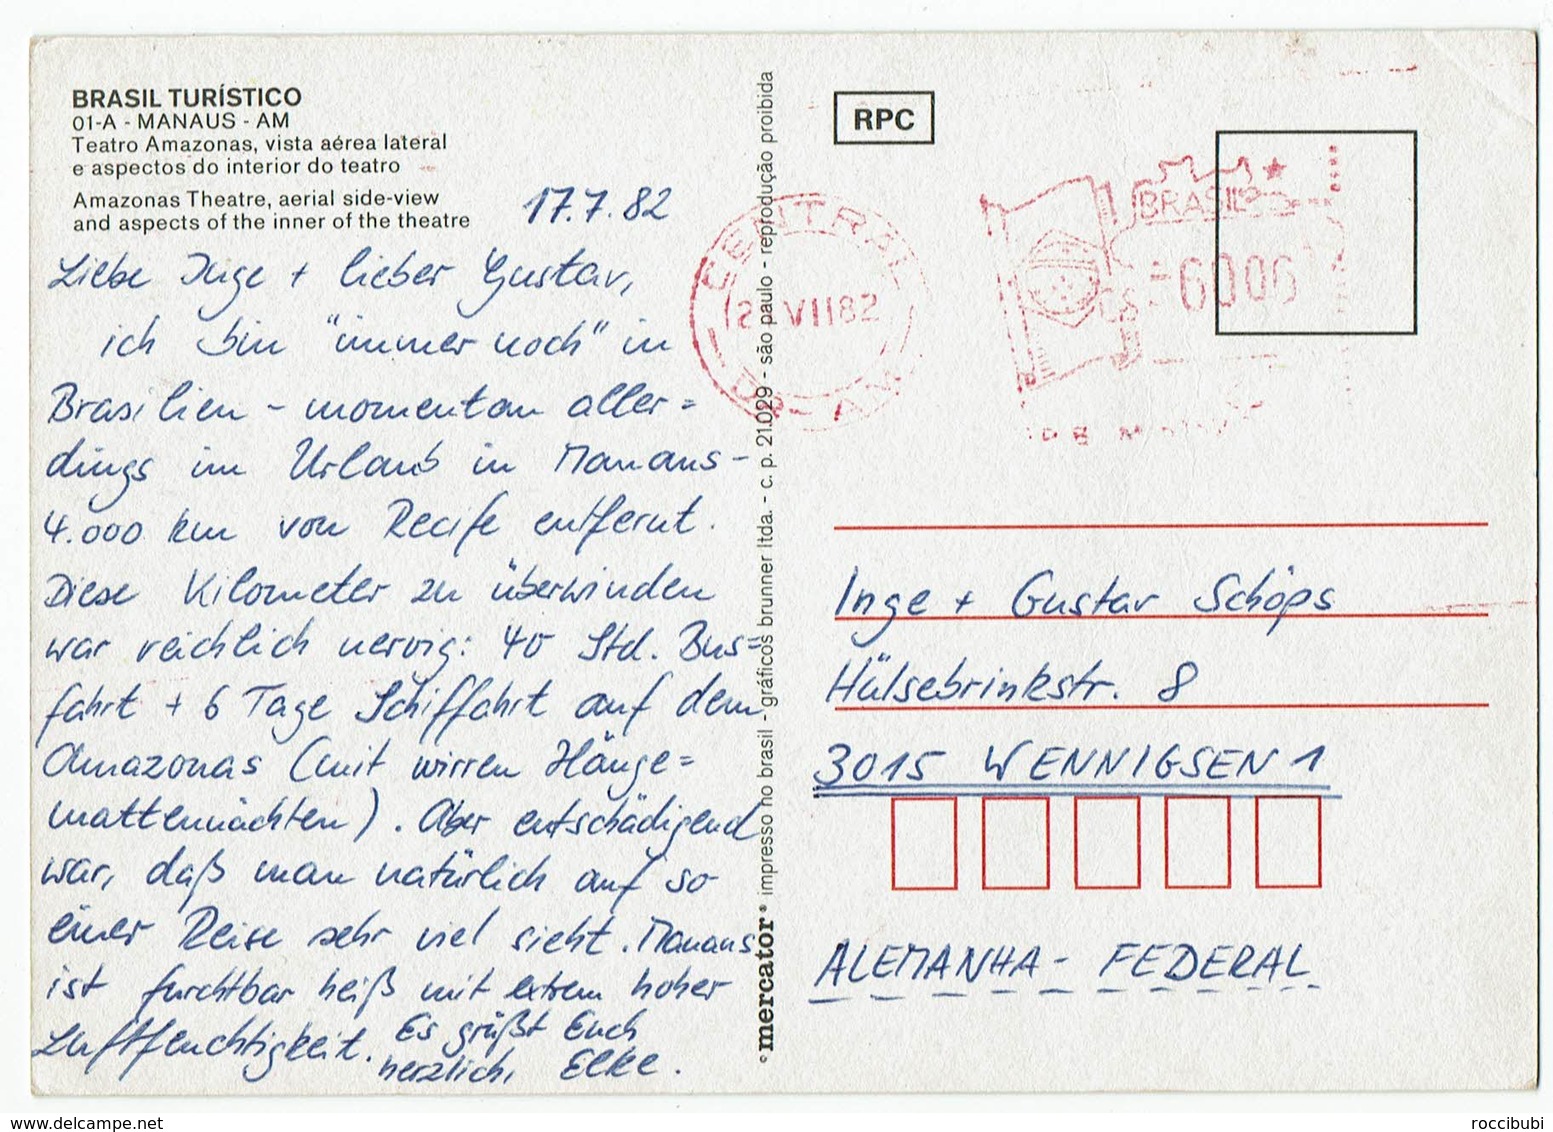 BRASIL TURÍSTICO
01-A - MANAUS - AM
Teatro Amazonas, vista aérea lateral
e aspectos do interior do teatro
Amazonas Theatre, aerial side-view
and aspects of the inner of the theatre
17.7.82
Liebe Inge + lieber Gustav,
ich bin "immer noch" in
Brasilien - momentan aller=
dings im Urlaub in Manaus-
4.000 km von Recife entfernt.
Diese Kilometer zu überwinden
war reichlich nervig: 40 Std. Bus=
fahrt + 6 Tage Schiffahrt auf dem
Amazonas (mit wirren Hänge=
mattennächten). Aber entschädigend
war, daß man natürlich auf so
einer Reise sehr viel sieht. Manaus
ist furchtbar heiß mit extrem hoher
Luftfeuchtigkeit. Es grüßt Euch
herzlich, Elke.
°mercator® impresso no brasil - gráficos brunner ltda. - c. p. 21.029 - são paulo - reprodução proibida
RPC
CENTRAL
VII82
AM
BRASIL
=6006
Inge + Gustav Schöps
Hülsebrinkstr. 8
3015 WENNIGSEN 1
ALEMANHA - FEDERAL
roccibubi